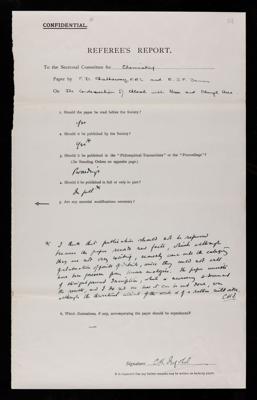 CONFIDENTIAL.
REFEREE'S REPORT.
To the Sectional Committee for Chemistry
Paper by F. D. Chattaway, F.R.S. and E. J. F.
On The Condensation of Chloral with Urea and Phenyl Urea
1. Should the paper be read before the Society?
yes
2. Should it be published by the Society?
Yes*
3. Should it be published in the "Philosophical Transactions" or the "Proceedings"?
(See Standing Orders on opposite page).
Proceedings
4. Should it be published in full or only in part?
In full*
5. Are any essential modifications necessary?
* I think that publication should not be refused
because the paper records real facts, which although
they are not very exciting, scarcely come into the category
of
have been foreseen from
the results, and I do not see how it can be cut down, even
although the theoretical interest of the work is of a rather
C.K.I.
6. Which illustrations, if any, accompanying the paper should be reproduced?
Signature C.K. Ingold
It is requested that any further remarks may be written on following pages.